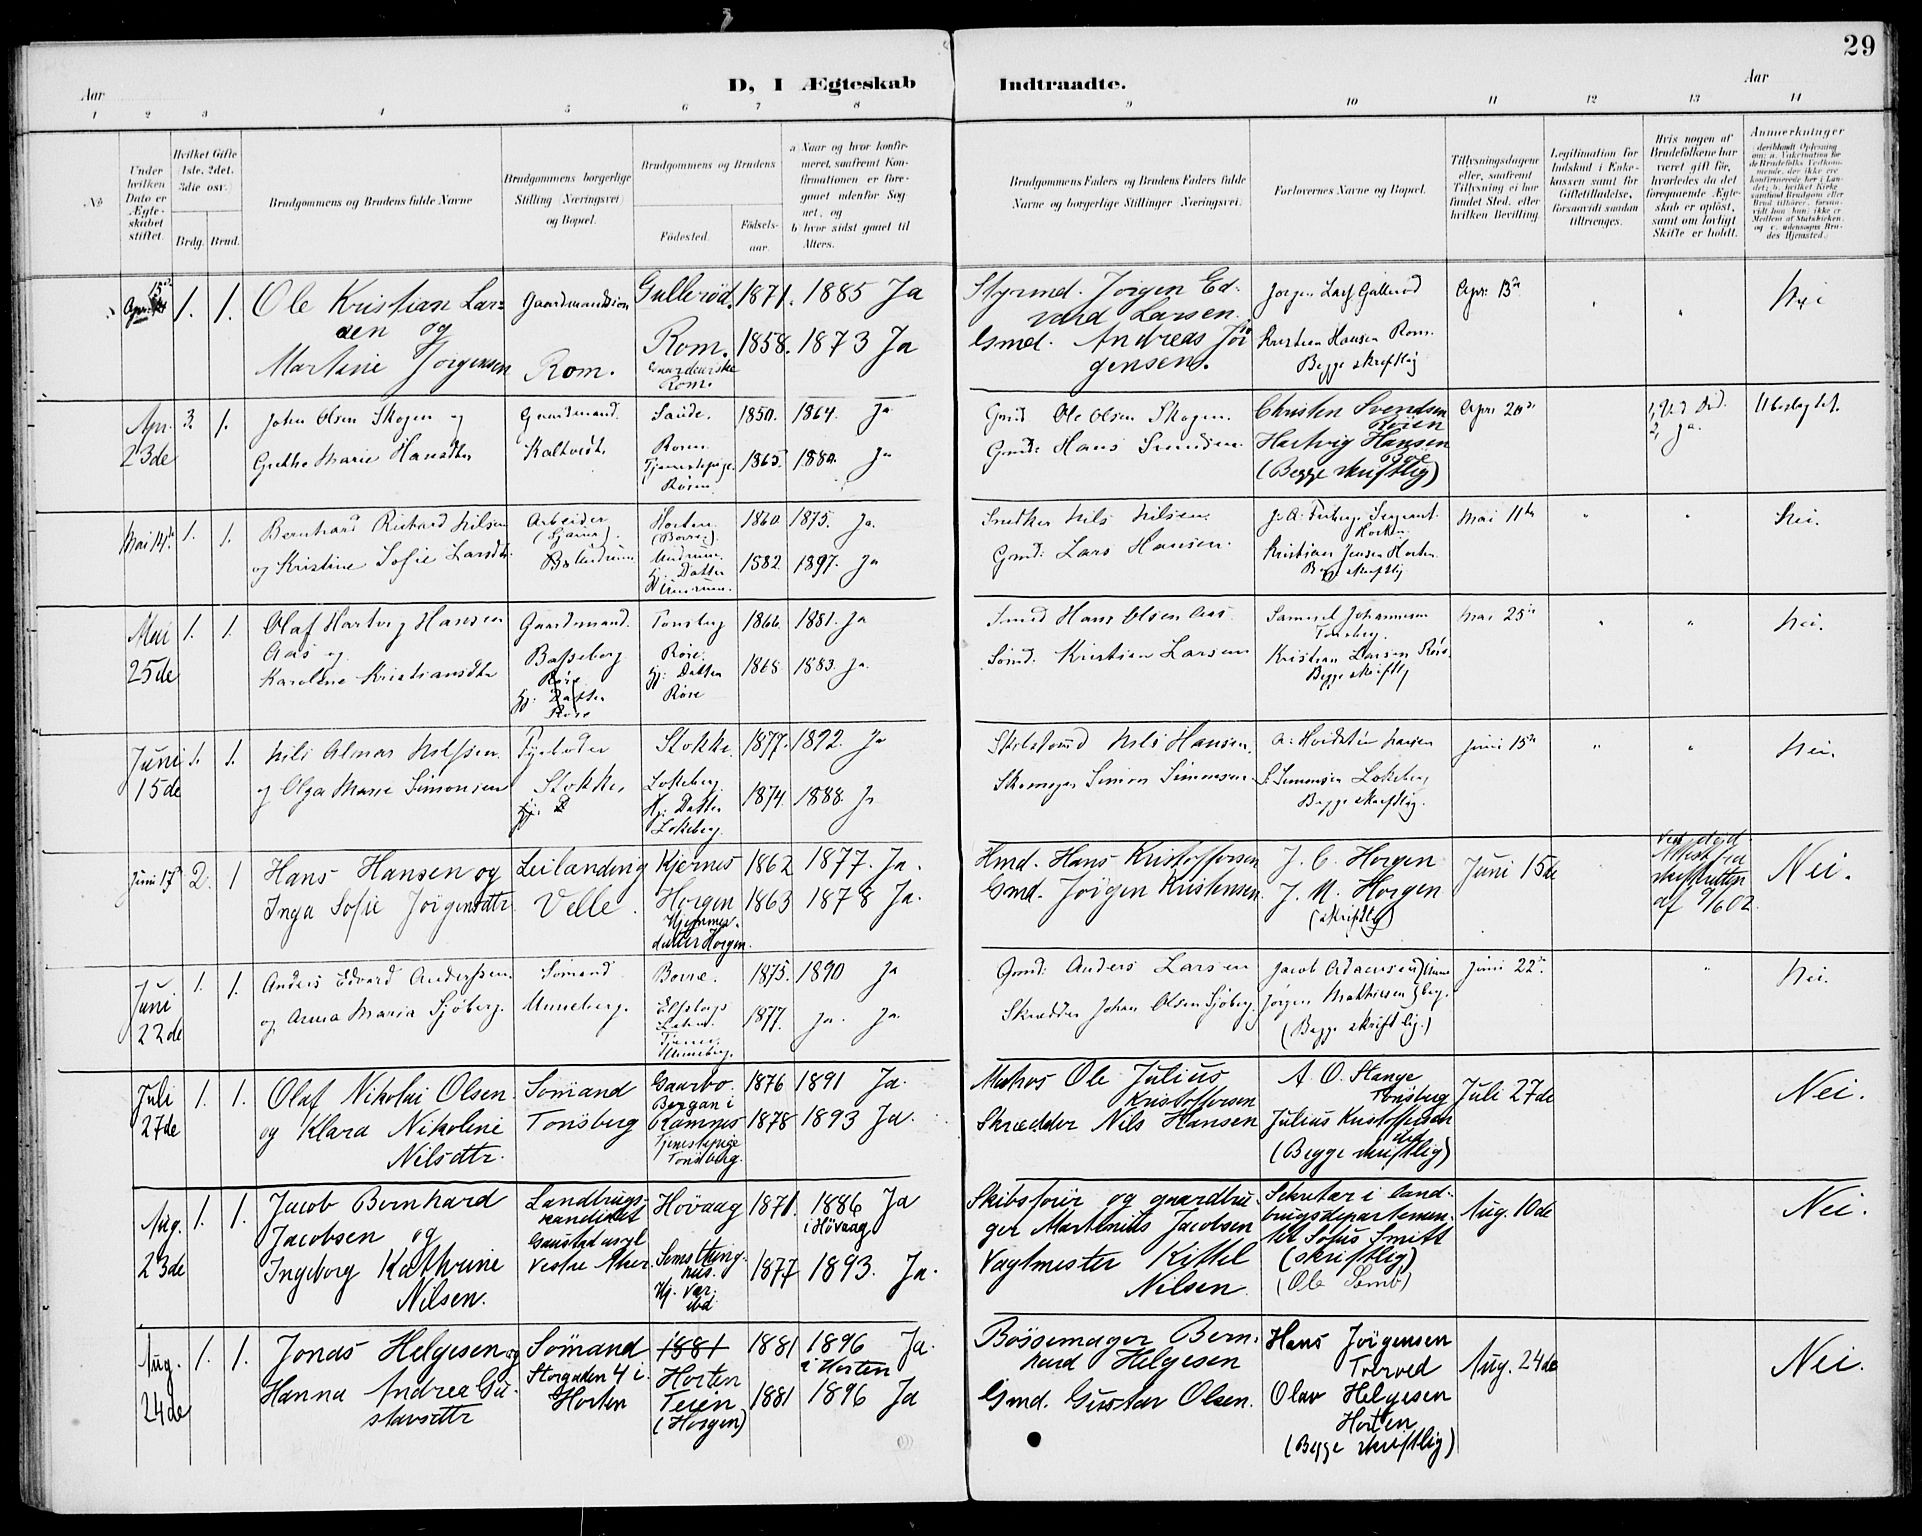 29
D, I Ægteskab Indtraadte.
Aar Aar
1 2 3 4 5 6 7 8 9 10 11 12 13 14
No
Under hvilken Dato er Ægteskabet stiftet.
Hvilket Gifte 1ste, 2det, 3die osv.
Brdg. Brud.
Brudgommens og Brudens fulde Navne
Brudgommens borgerlige Stilling (Næringsvei) og Bopæl.
Brudgommens og Brudens
Fødested. Fødselsaar.
a Naar og hvor konfirmeret, saafremt Konfirmationen er foregaaet udenfor Sognet, og
b hvor sidst gaaet til Alters.
Brudgommens Faders og Brudens Faders fulde Navne og borgerlige Stillinger (Næringsvei)
Forlovernes Navne og Bopæl.
Tillysningsdagene eller, saafremt Tillysning ei har fundet Sted, efter hvilken Bevilling.
Legitimation for Indskud i Enkekassen samt for Giftetilladelse, forsaavidt saadan tiltrænges.
Hvis nogen af Brudefolkene har været gift før, hvorledes da det foregaaende Ægteskab er opløst, samt om lovligt Skifte er holdt.
Anmerkninger
Apr. 15de 1. 1. Ole Kristian Larsen og Gaardmandssøn Gullerød. 1871. 1885 Ja Styrmd. Jørgen Edvard Larsen. Jørgen Larsen Gullerød Apr. 13de Nei
Martine Jørgensen Rom. Rom. 1858. 1873 Ja Gmd. Andreas Jørgensen. Kristian Hansen Rom.
Gaardeierske Rom. Begge skriftlig
Apr. 23de 3. 1. John Olsen Skogen og Gaardmand. Sande. 1850. 1864. Ja Gmd Ole Olsen Skogen. Christen Svendsen Røren Apr. 20de 1, Ved Død. 2, ja. Ubeslægtet.
Grethe Marie Hansdtr Kaltvedt Roren Tjenestepige Røren 1865. 1880. Ja Gmd: Hans Hartvig Hansen Bøe
(Begge skriftlig)
Mai 14de 1. 1. Bernhard Richard Nilsen Arbeider Horten (Borre) 1860. 1875. Ja. Snedker Nils Nilsen. Sergeant Horten Mai 11te " " Nei.
og Kristine Sofie Larsdtr. Undrum Undrum. Hj. Datter Undrum. 1582. 1897. Ja Gmd: Lars Hansen. Kristian Jensen Horten
Begge skriftlig
Mai 25de 1. 1. Olaf Hartvig Hansen Aas og Gaardmand. Tønsberg 1866. 1881. Ja Smed Hans Olsen Aas. Samuel Johannesen Tønsberg. Mai 25de " " Nei.
Karoline Kristiansdtr Basseberg Røre Hj. Datter Røre Røre. Hj. Datter Røre 1868 1883. Ja. Sømd. Kristian Larsen Kristian Larsen Røre.
Begge skriftlig
Juni 15de 1. 1. Nils Almar Nilssen. Stokke. 1877. 1892. Ja Skibstømd Nils Hansen. Juni 15de " " Nei.
og Olga Marie Simonsen Stokke Hj. D Lokeberg Hj. Datter Lokeberg. 1874. 1888. Ja Skomager Simon Simonsen S. Simonsen Lokeberg
Begge skriftlig.
Juni 17de 2. 1 Hans Hansen og Leilænding Kjernes 1862 1877. Ja. Hmd. Hans Kristoffersen J. C. Horgen Juni 15de Ved død Attest fra skifteretten af 9/6 02. Nei.
Inga Sofie Jørgensdtr Velle. Horgen Hjemmedatter Horgen. 1863 1878 Ja. Gmd. Jørgen Kristensen. J. M. Horgen
(skriftlig)
Juni 22de 1. 1. Anders Edvard Anderssen. Sømand Borre. 1875. 1890 Ja Gmd: Anders Larsen Juni 22de " Nei.
og Anna Maria Sjøberg. Unneberg. Elfsborgs Tjener Unneberg. 1877. ja. Ja. Skrædder Johan Olsen Sjøberg Jørgen Mathiesen
(Begge skriftlig.)
Juli 27de 1. 1. Olaf Nikolai Olsen Sømand Gaarbo. 1876 1891 Ja. Matros Ole Julius Kristoffersen A. O. Stange Tønsberg Juli 27de Nei.
og Klara Nikoline Nilsdtr. Tønsberg Bergan i Ramnes Tjenestepige Tønsberg. 1878 1893 Ja. Skrædder Nils Hansen Julius Kristoffersen
(Begge skriftlig)
Aug. 23de 1. 1. Jacob Bernhard Jacobsen og Landbrugskandidat Gaustad asyl Vestre Aker. Høvaag 1871. 1886 i Høvaag Ja Skibsfører og gaardbruger Martinius Jacobsen Sekretær i Landbrugsdepartementet Sofus Smitt (skriftlig) Aug. 10de Nei.
Ingeborg Kathrine Nilsen. 1877 1893. Ja. Vagtmester Kittel Nilsen (Ole Semb)
Aug. 24de 1. 1. Jonas Helgesen og Sømand Storgaden 4 i Horten 1881 Horten 1881 1896 i Horten Ja. Bøssemager Bernhard Helgesen Hans Jørgensen Treved Aug. 24de Nei.
Hanna Andrea Gustavsdtr Teien (Horgen) 1881 1896 Ja Gmd. Gustav Olsen. Olav Helgesen Horten
(Begge skriftlig)